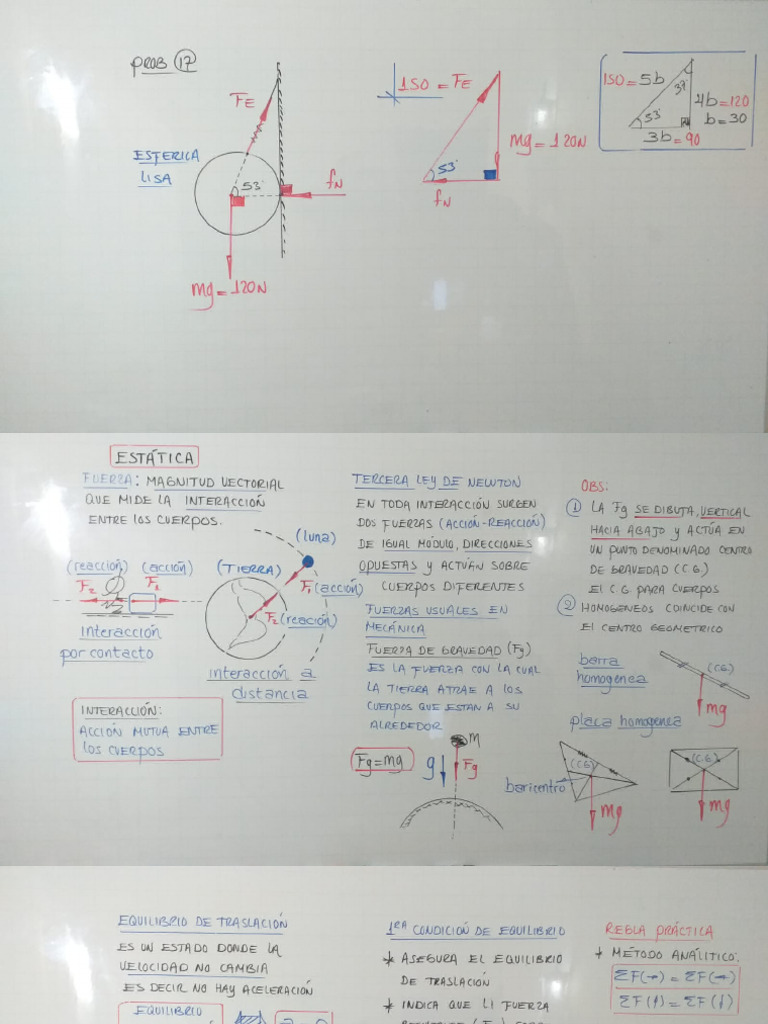 PROB 17
FE
ESFERICA
LISA
53°
fN
mg = 120N
150 = FE
mg = 120N
53°
fN
150 = 5b
37°
4b = 120
b = 30
53°
3b = 90
ESTÁTICA
FUERZA: MAGNITUD VECTORIAL
QUE MIDE LA INTERACCIÓN
ENTRE LOS CUERPOS.
(luna)
(reacción) (acción)
F2 F1
(TIERRA)
F1 (acción)
F2 (reación)
Interacción
por contacto
interacción a
distancia
INTERACCIÓN:
ACCIÓN MUTUA ENTRE
LOS CUERPOS
TERCERA LEY DE NEWTON
EN TODA INTERACCIÓN SURGEN
DOS FUERZAS (ACCIÓN-REACCIÓN)
DE IGUAL MÓDULO, DIRECCIONES
OPUESTAS Y ACTUÁN SOBRE
CUERPOS DIFERENTES
FUERZAS USUALES EN
MECÁNICA
FUERZA DE GRAVEDAD (Fg)
ES LA FUERZA CON LA CUAL
LA TIERRA ATRAE A LOS
CUERPOS QUE ESTAN A SU
ALREDEDOR
Fg = mg
g
M
Fg
OBS:
1 LA Fg SE DIBUJA, VERTICAL
HACIA ABAJO Y ACTÚA EN
UN PUNTO DENOMINADO CENTRO
DE GRAVEDAD (C.G.)
El C G PARA CUERPOS
2 HOMOGENEOS COINCIDE CON
El CENTRO GEOMETRICO
barra
homogenea
(C.G.)
mg
placa homogenea
(C.G)
baricentro
mg
(C.G.)
mg
EQUILIBRIO DE TRASLACIÓN
ES UN ESTADO DONDE LA
VELOCIDAD NO CAMBIA
ES DECIR NO HAY ACELERACIÓN
EQUILIBRIO
1RA CONDICIÓN DE EQUILIBRIO
* ASEGURA EL EQUILIBRIO
DE TRASLACIÓN
* INDICA QUE LA FUERZA
REGLA PRÁCTICA
* MÉTODO ANÁLITICO:
ΣF(→) = ΣF(←)
ΣF(↑) = ΣF(↓)